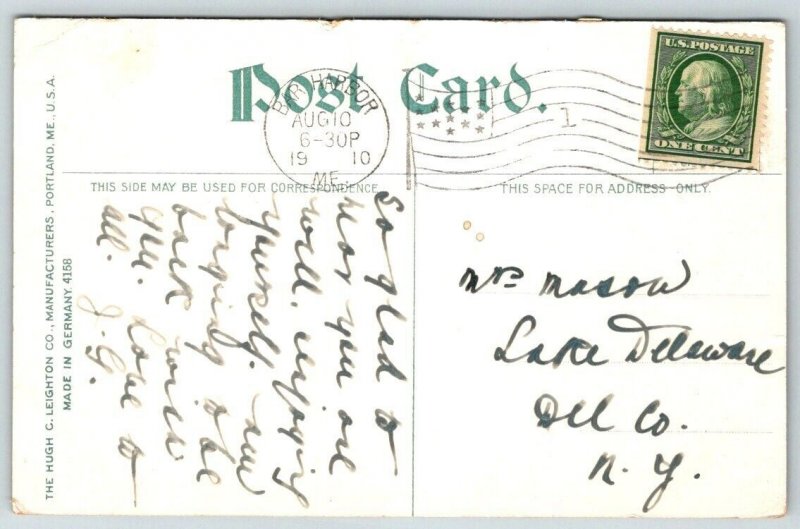 Post Card.
BAR HARBOR
AUG 10
6-30P
19 10
ME.
1
U.S. POSTAGE
ONE CENT
THIS SIDE MAY BE USED FOR CORRESPONDENCE
THIS SPACE FOR ADDRESS ONLY.
So glad to
hear you are
well, enjoying
yourself. am
longing to be
back with
you. Love to
all.
J. G.
Mrs Mason
Lake Delaware
Del Co.
N. Y.
THE HUGH C. LEIGHTON CO., MANUFACTURERS, PORTLAND, ME., U.S.A.
MADE IN GERMANY. 4158